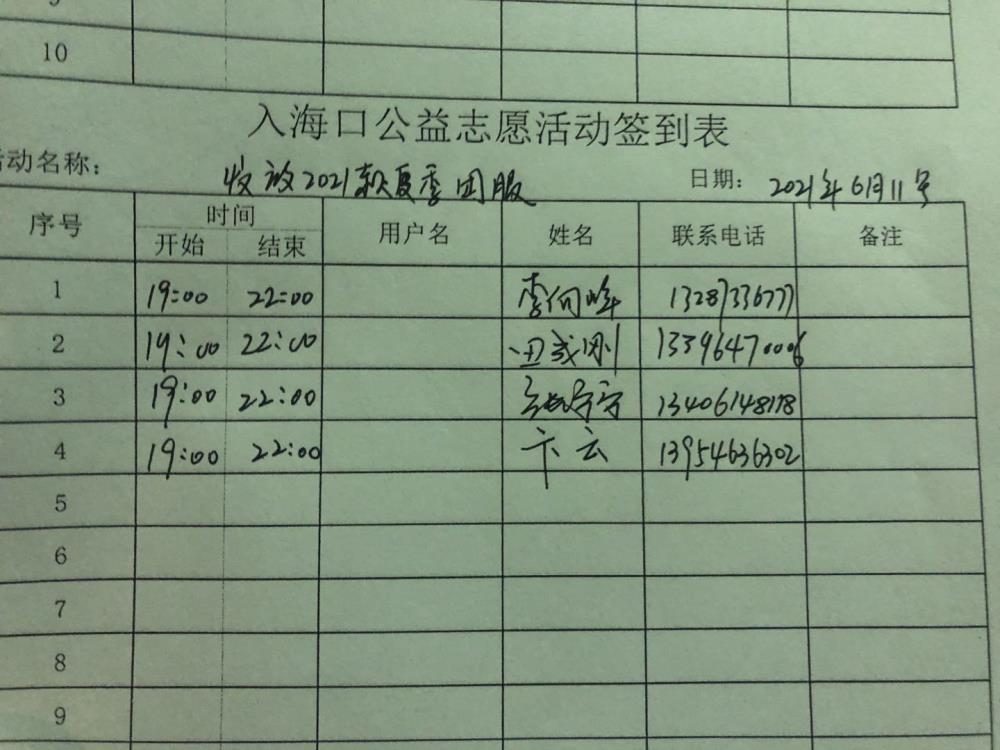 10
入海口公益志愿活动签到表
活动名称： 收放2021款夏季团服 日期： 2021年6月11号
序号 时间 用户名 姓名 联系电话 备注
开始 结束
1 19:00 22:00 李向峰 13287336777
2 19:00 22:00 田成刚 13396470006
3 19:00 22:00 13406148178
4 19:00 22:00 卞云 13954636302
5
6
7
8
9